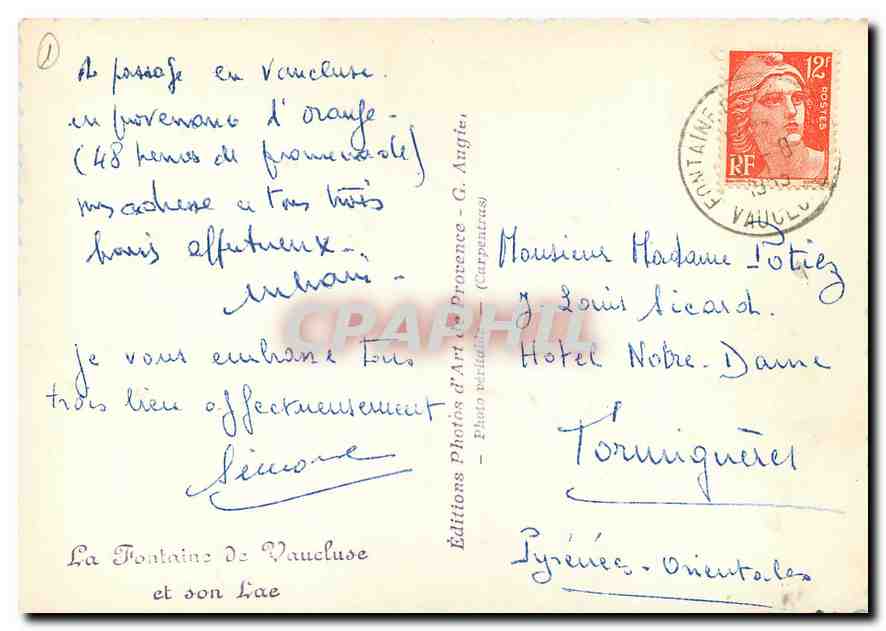 1
de passage en Vaucluse
en provenance d'Orange -
(48 heures de promenade)
adresse a tous trois
affectueux -
je vous embrasse tous
trois bien affectueusement
Simone
La Fontaine de Vaucluse
et son Lac
Éditions Photos d'Art de Provence - G. Augier,
- Photo véritable - (Carpentras)
CPAPHIL
12F
POSTES
RF
FONTAINE
VAUCLUSE
Monsieur Madame Potiez
J. Louis Sicard.
Hôtel Notre-Dame
Formiguères
Pyrénées-Orientales